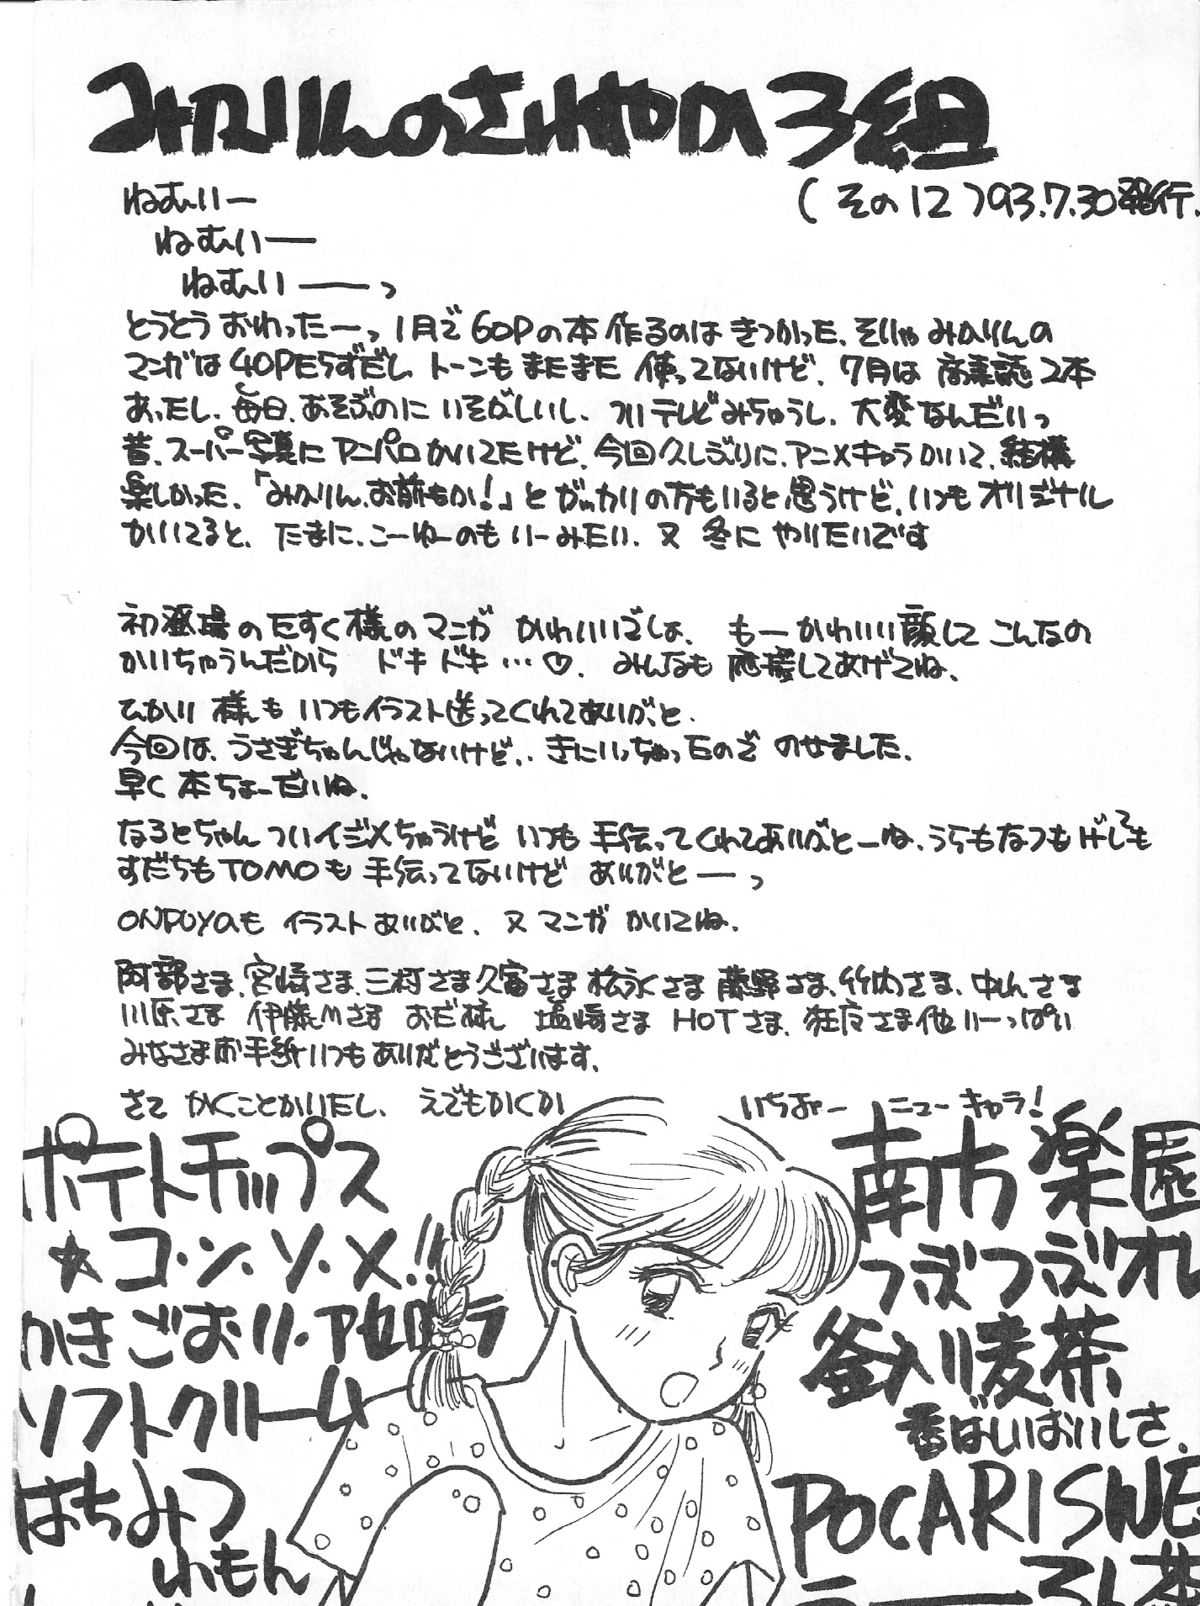 みかりんのさわやか3組
(その12)93.7.30発行.
ねむいー
ねむいー
ねむいーーっ
とうとうおわったーっ 1月で60Pの本作るのはきつかった. そりゃみかりんの
マンガは40Pたらずだし トーンもまたまた使ってないけど. 7月は商業誌2本
あったし. 毎日. あそぶのにいそがしいし. ついテレビみちゅうし. 大変なんだいっ
昔. スーパー写真にアニパロかいてたけど. 今回久しぶりに. アニメキャラかいて. 結構
楽しかった.「みかりん. お前もか!」とガッカリの方もいると思うけど. いつもオリジナル
かいてると. たまに. こーゆーのもいーみたい. 又冬にやりたいです
初登場のたすく様のマンガ かわいいでしょ. もーかわいい顔してこんなの
かいちゃうんだから ドキドキ…♡. みんなも応援してあげてね.
ひかり様も いつもイラスト送ってくれてありがと.
今回は. うさぎちゃんじゃないけど.. きにいっちゃったので のせました.
早く本ちょーだいね.
なるとちゃん ついイジメちゃうけど いつも手伝ってくれてありがとーね. うらもなつもげしても
すだちもTOMOも手伝ってないけど ありがとーーっ
ONPUYAも イラストありがと. 又マンガかいてね.
阿部さま. 宮崎さま. 三村さま 久富さま 松永さま 藤野さま. 竹内さま. 中しんさま
川原さま 伊藤Mさま おだ様 塩崎さま HOTさま. 狂彦さま他いーっぱい
みなさまお手紙いつもありがとうございます.
さて かくことかいたし. えでもかくか
いちおー ニューキャラ!
ポテトチップス
★コ・ン・ソ・メ!!
かきごおり・アセロラ
ソフトクリーム
はちみつ
れもん
南方楽園
つぶつぶオレ
釜入り麦茶
香ばしいおいしさ.
POCARISWE